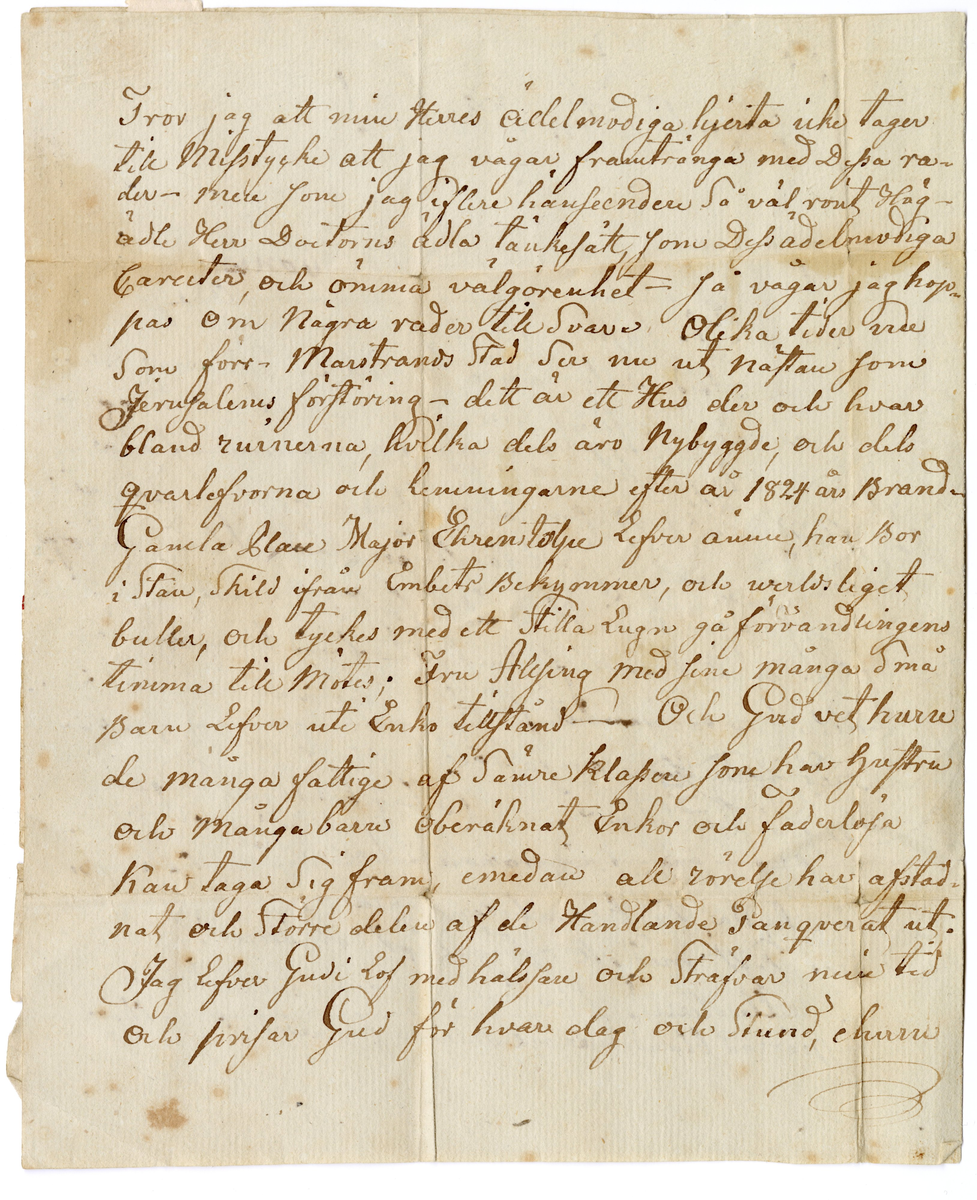 Tror jag att min Herres ädelmodiga hjerta icke tager
till Misstycke att jag vågar framtränga med Dessa ra-
der - men som jag i flere hänseenden Så väl rönt Hög-
ädle Herr Doctorns ädla tänkesätt, som Dess ädelmodiga
Carecter, och ömma välgörenhet - så vågar jag hop-
pas Om Några rader till Svar. Olika tider nu
Som förr - Marstrands Stad Ser nu ut nästan som
Jerusalems förstöring - dett är ett Hus der och hvar
bland ruinerna, hvilka dels äro Nybyggde, och dels
qvarlefvorna och lemningarne efter år 1824 års Brand -
Gamla Major Ehrenstolpe Lefver ännu, han Bor
i Stan, Skild ifrån Embets Bekymmer, och werldsliget
buller, och tyckes med ett Stilla Lugn gå förvandlingens
timma till Mötes; Fru Alsing med sine många Små
Barn Lefver uti Enko tillstånd — Och Gud vet huru
de många fattige af Sämre Klassen som har Hustru
och Många barn Oberäknat Enkor och faderlösa
Kan taga Sig fram, emedan all rörelse har afstad-
nat och Större delen af de Handlande Panqverat ut.
Jag Lefver Gudi Lof med hälssan och Sträfvar min tid
och prisar Gud för hvar dag och Stund, ehuru